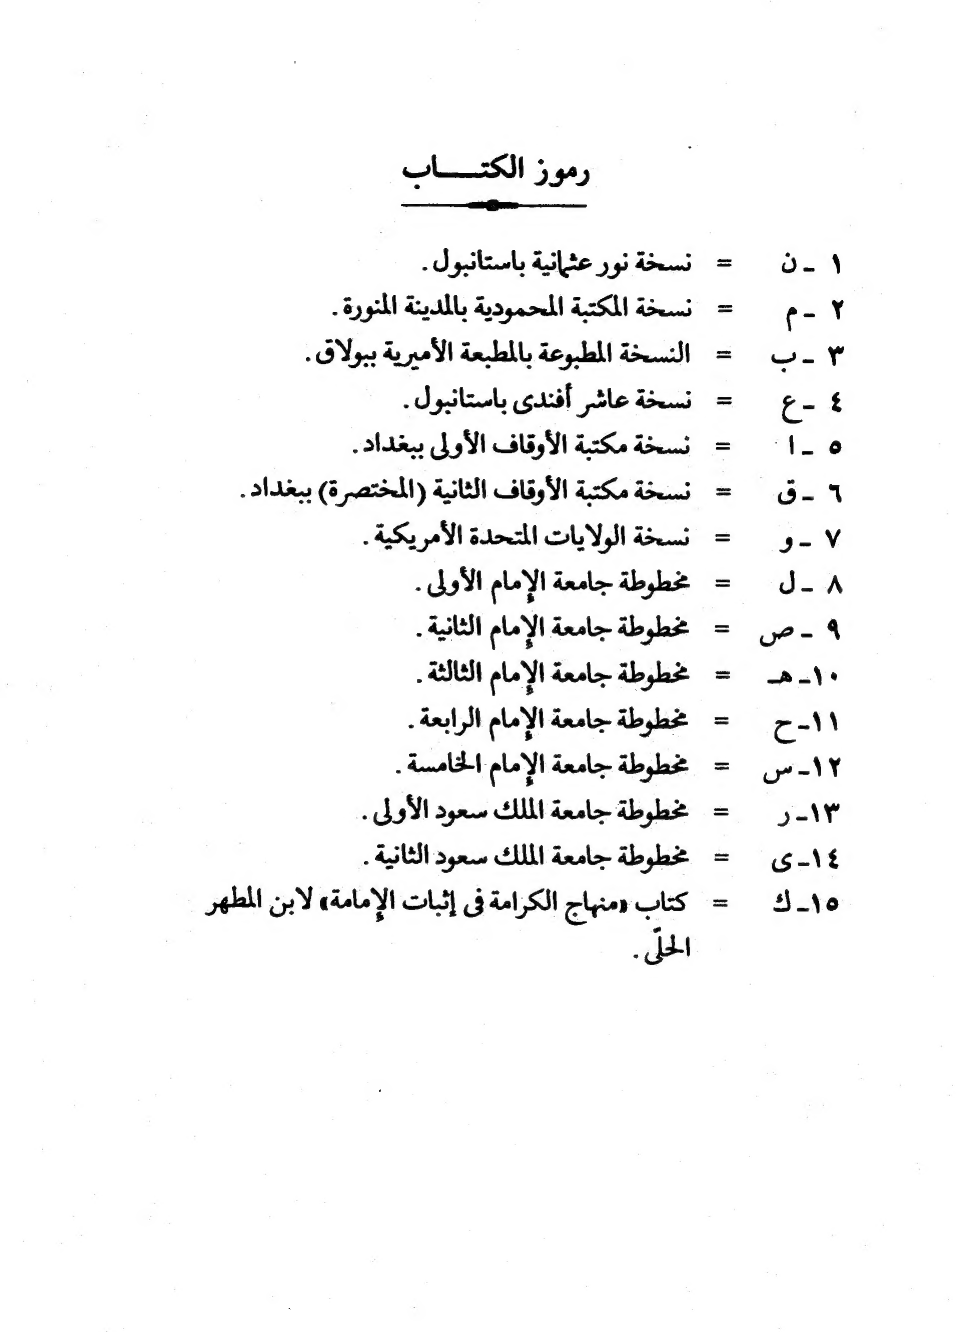 رموز الكتـــاب
١ ـ ن = نسخة نور عثمانية باستانبول.
٢ ـ م = نسخة المكتبة المحمودية بالمدينة المنورة.
٣ ـ ب = النسخة المطبوعة بالمطبعة الأميرية ببولاق.
٤ ـ ع = نسخة عاشر أفندى باستانبول.
٥ ـ ا = نسخة مكتبة الأوقاف الأولى ببغداد.
٦ ـ ق = نسخة مكتبة الأوقاف الثانية (المختصرة) ببغداد.
٧ ـ و = نسخة الولايات المتحدة الأمريكية.
٨ ـ ل = مخطوطة جامعة الإمام الأولى.
٩ ـ ص = مخطوطة جامعة الإمام الثانية.
١٠ـ هـ = مخطوطة جامعة الإمام الثالثة.
١١ـ ح = مخطوطة جامعة الإمام الرابعة.
١٢ـ س = مخطوطة جامعة الإمام الخامسة.
١٣ـ ر = مخطوطة جامعة الملك سعود الأولى.
١٤ـ ى = مخطوطة جامعة الملك سعود الثانية.
١٥ـ ك = كتاب «منهاج الكرامة فى إثبات الإمامة» لابن المطهر
الحلّى.